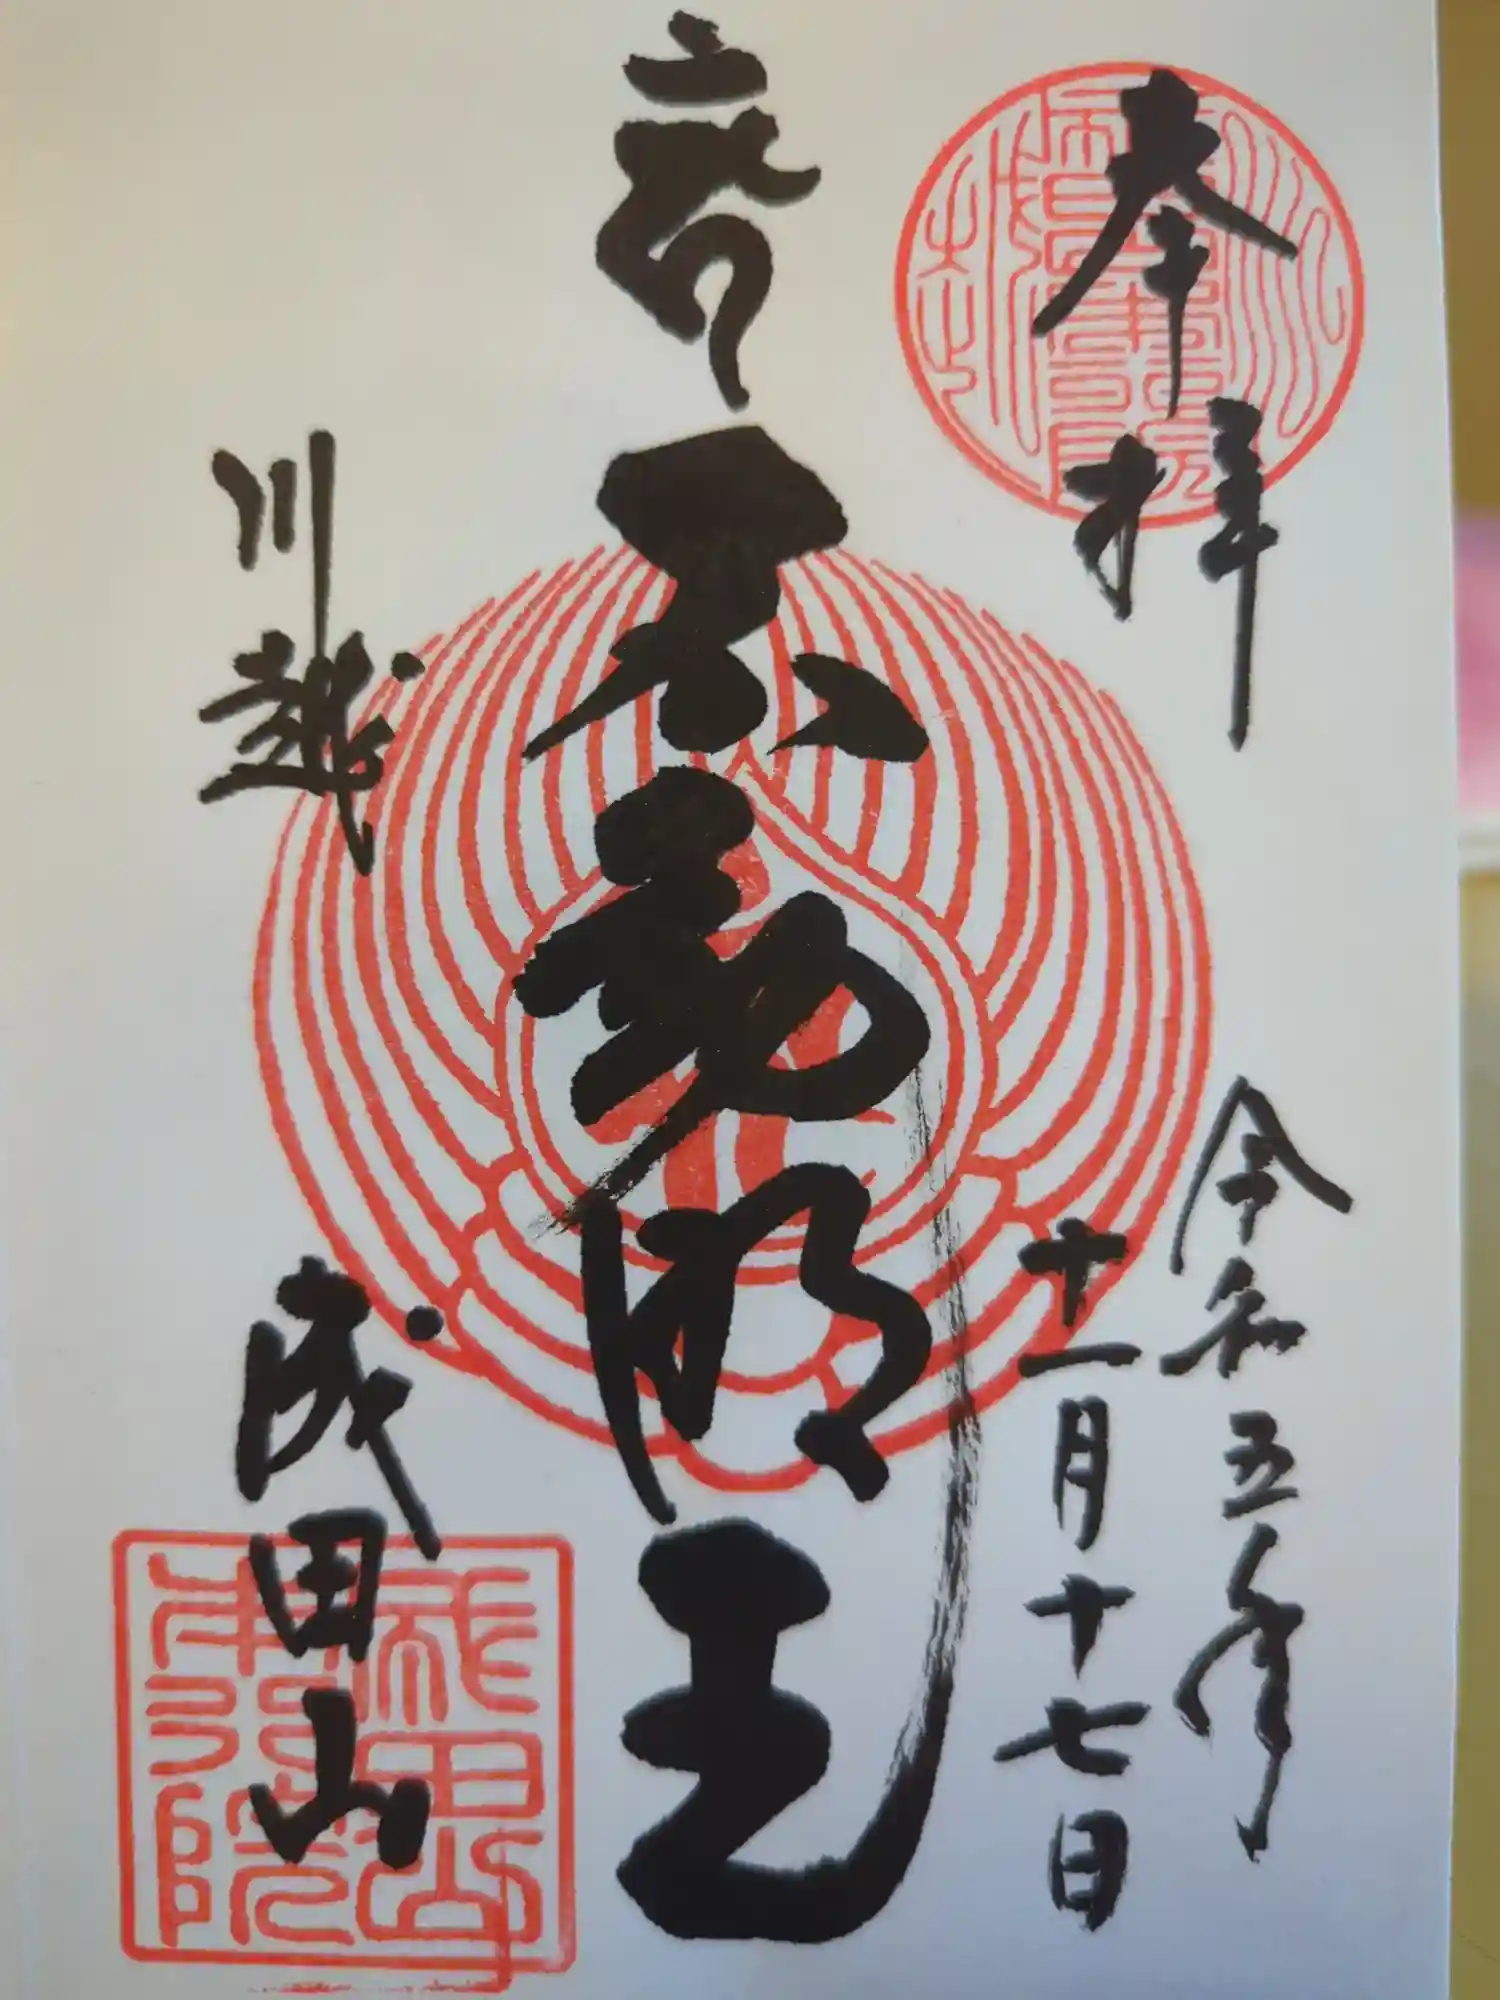 奉拝
令和五年
十一月十七日
不動明王
川越
成田山
成田山
本行院